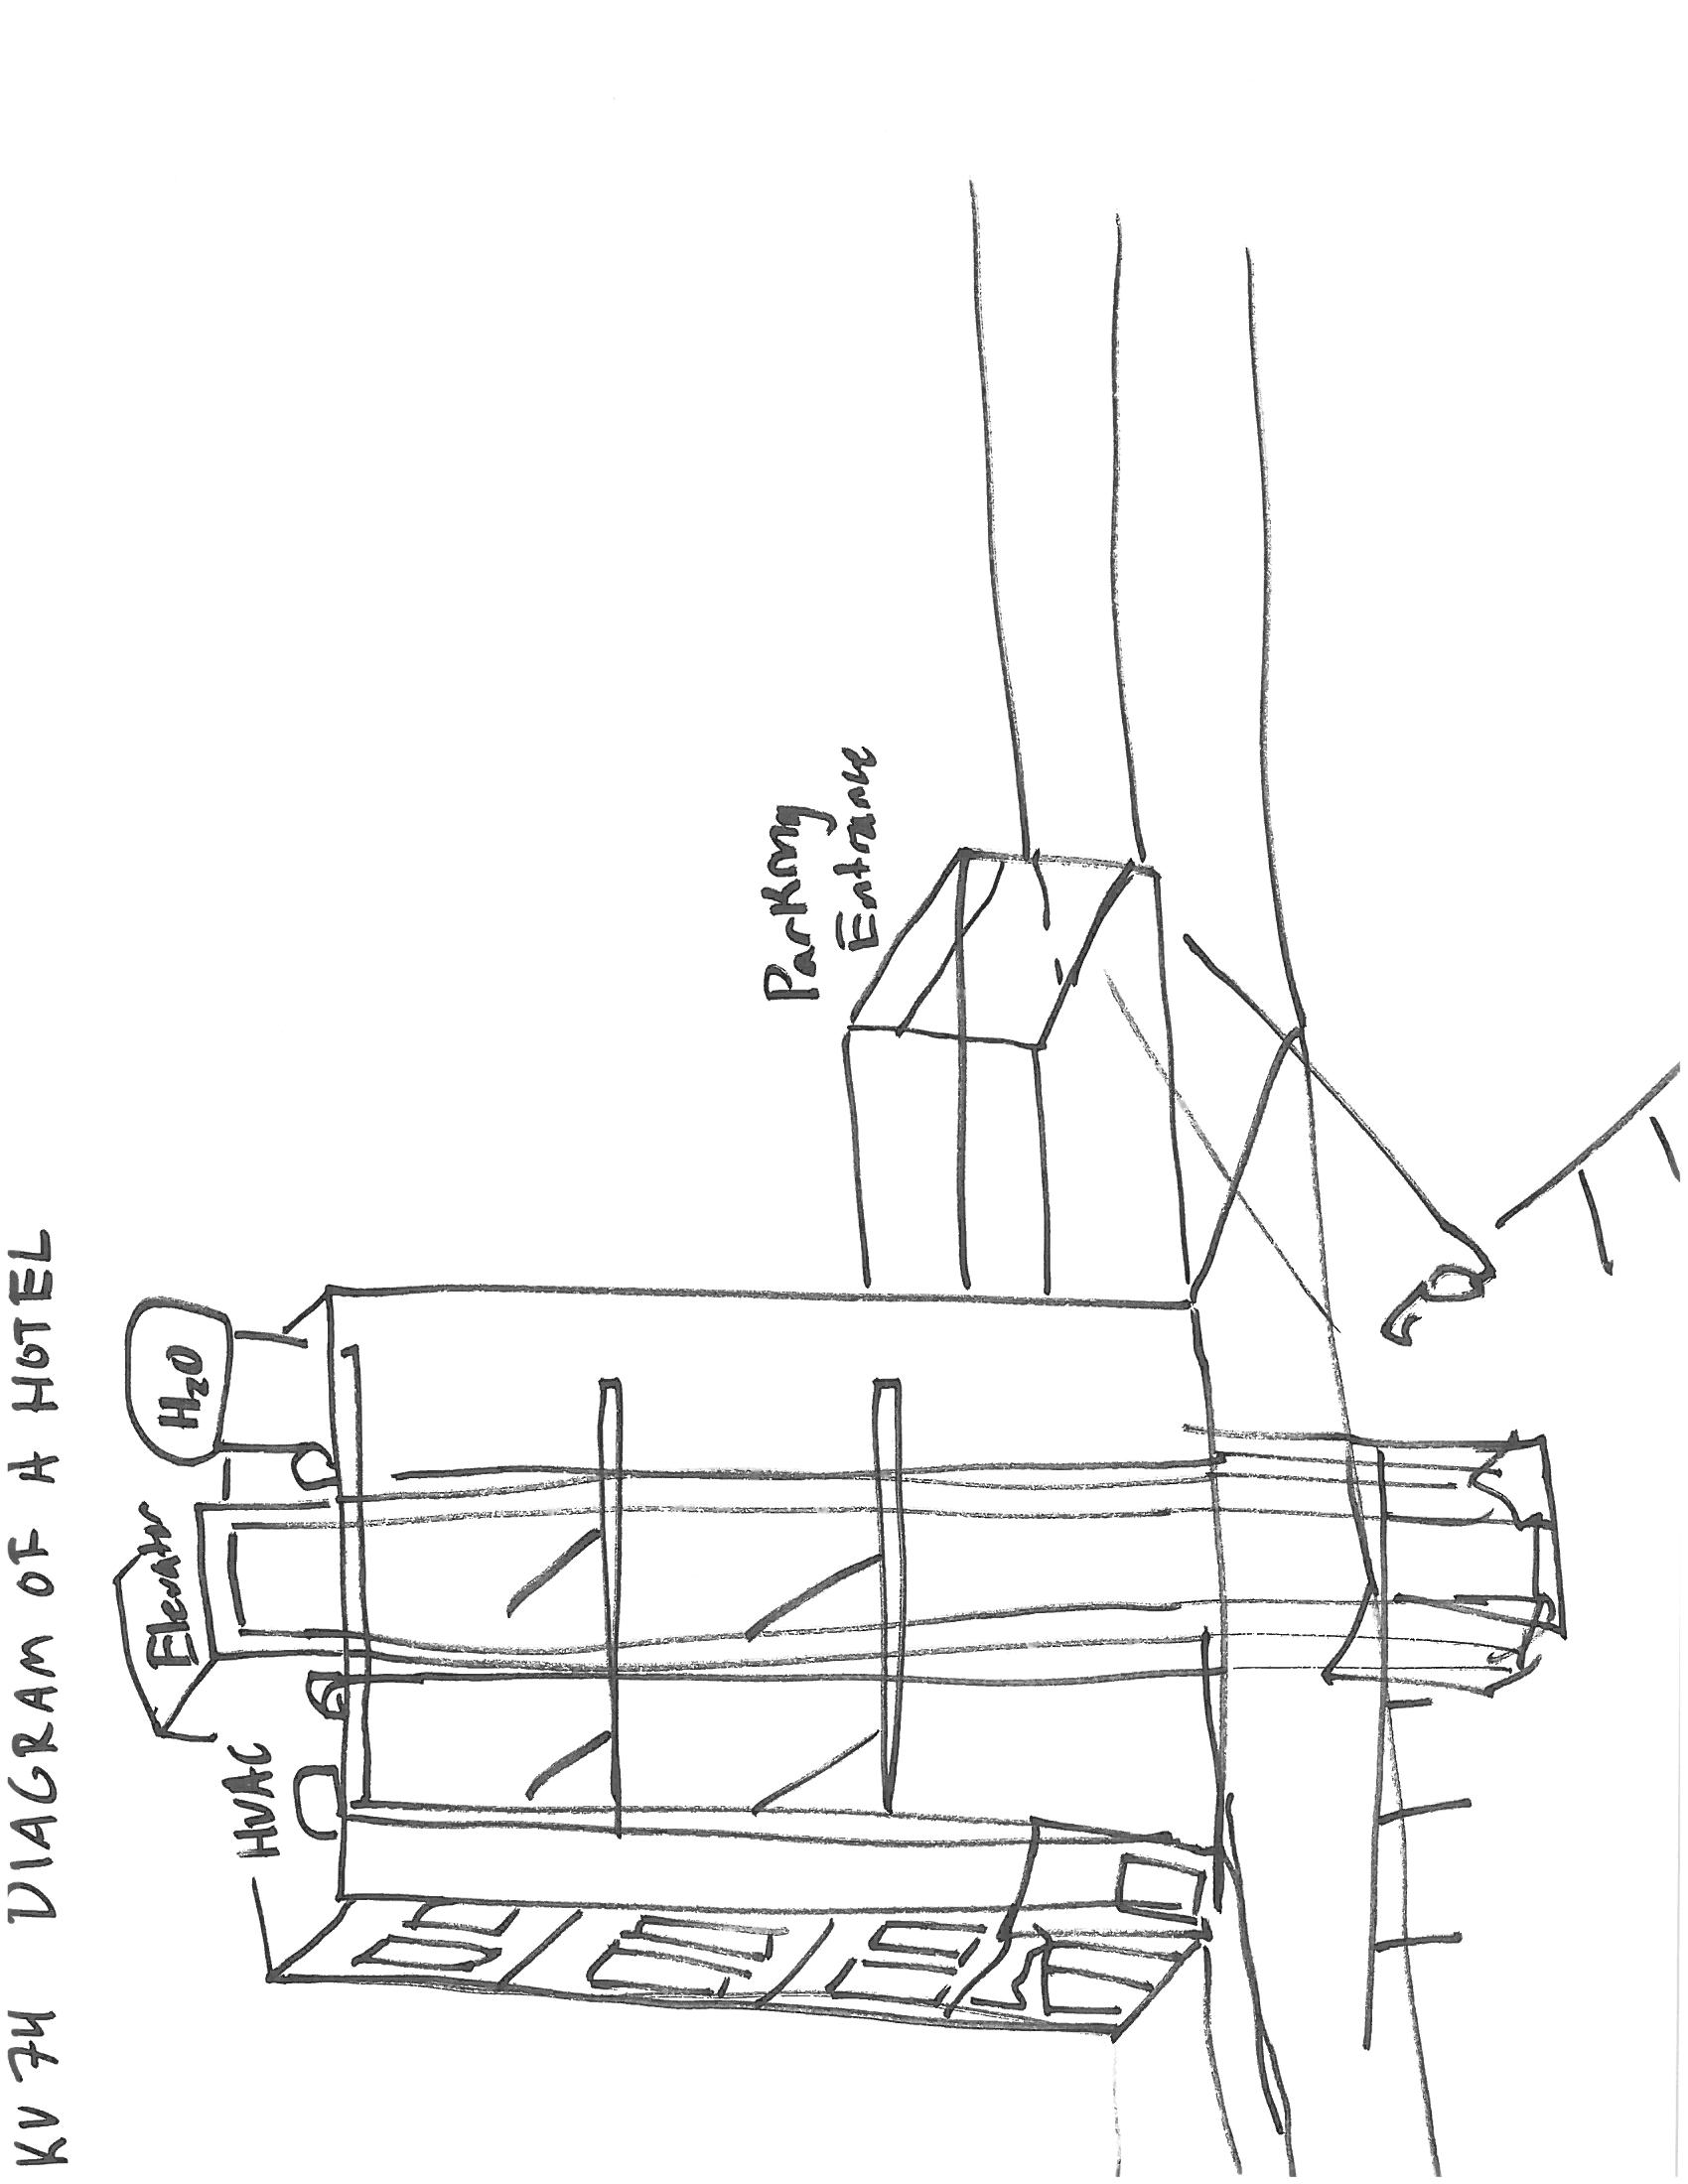 KV 74 DIAGRAM OF A HOTEL
H₂O
Elevator
HVAC
Parking
Entrance